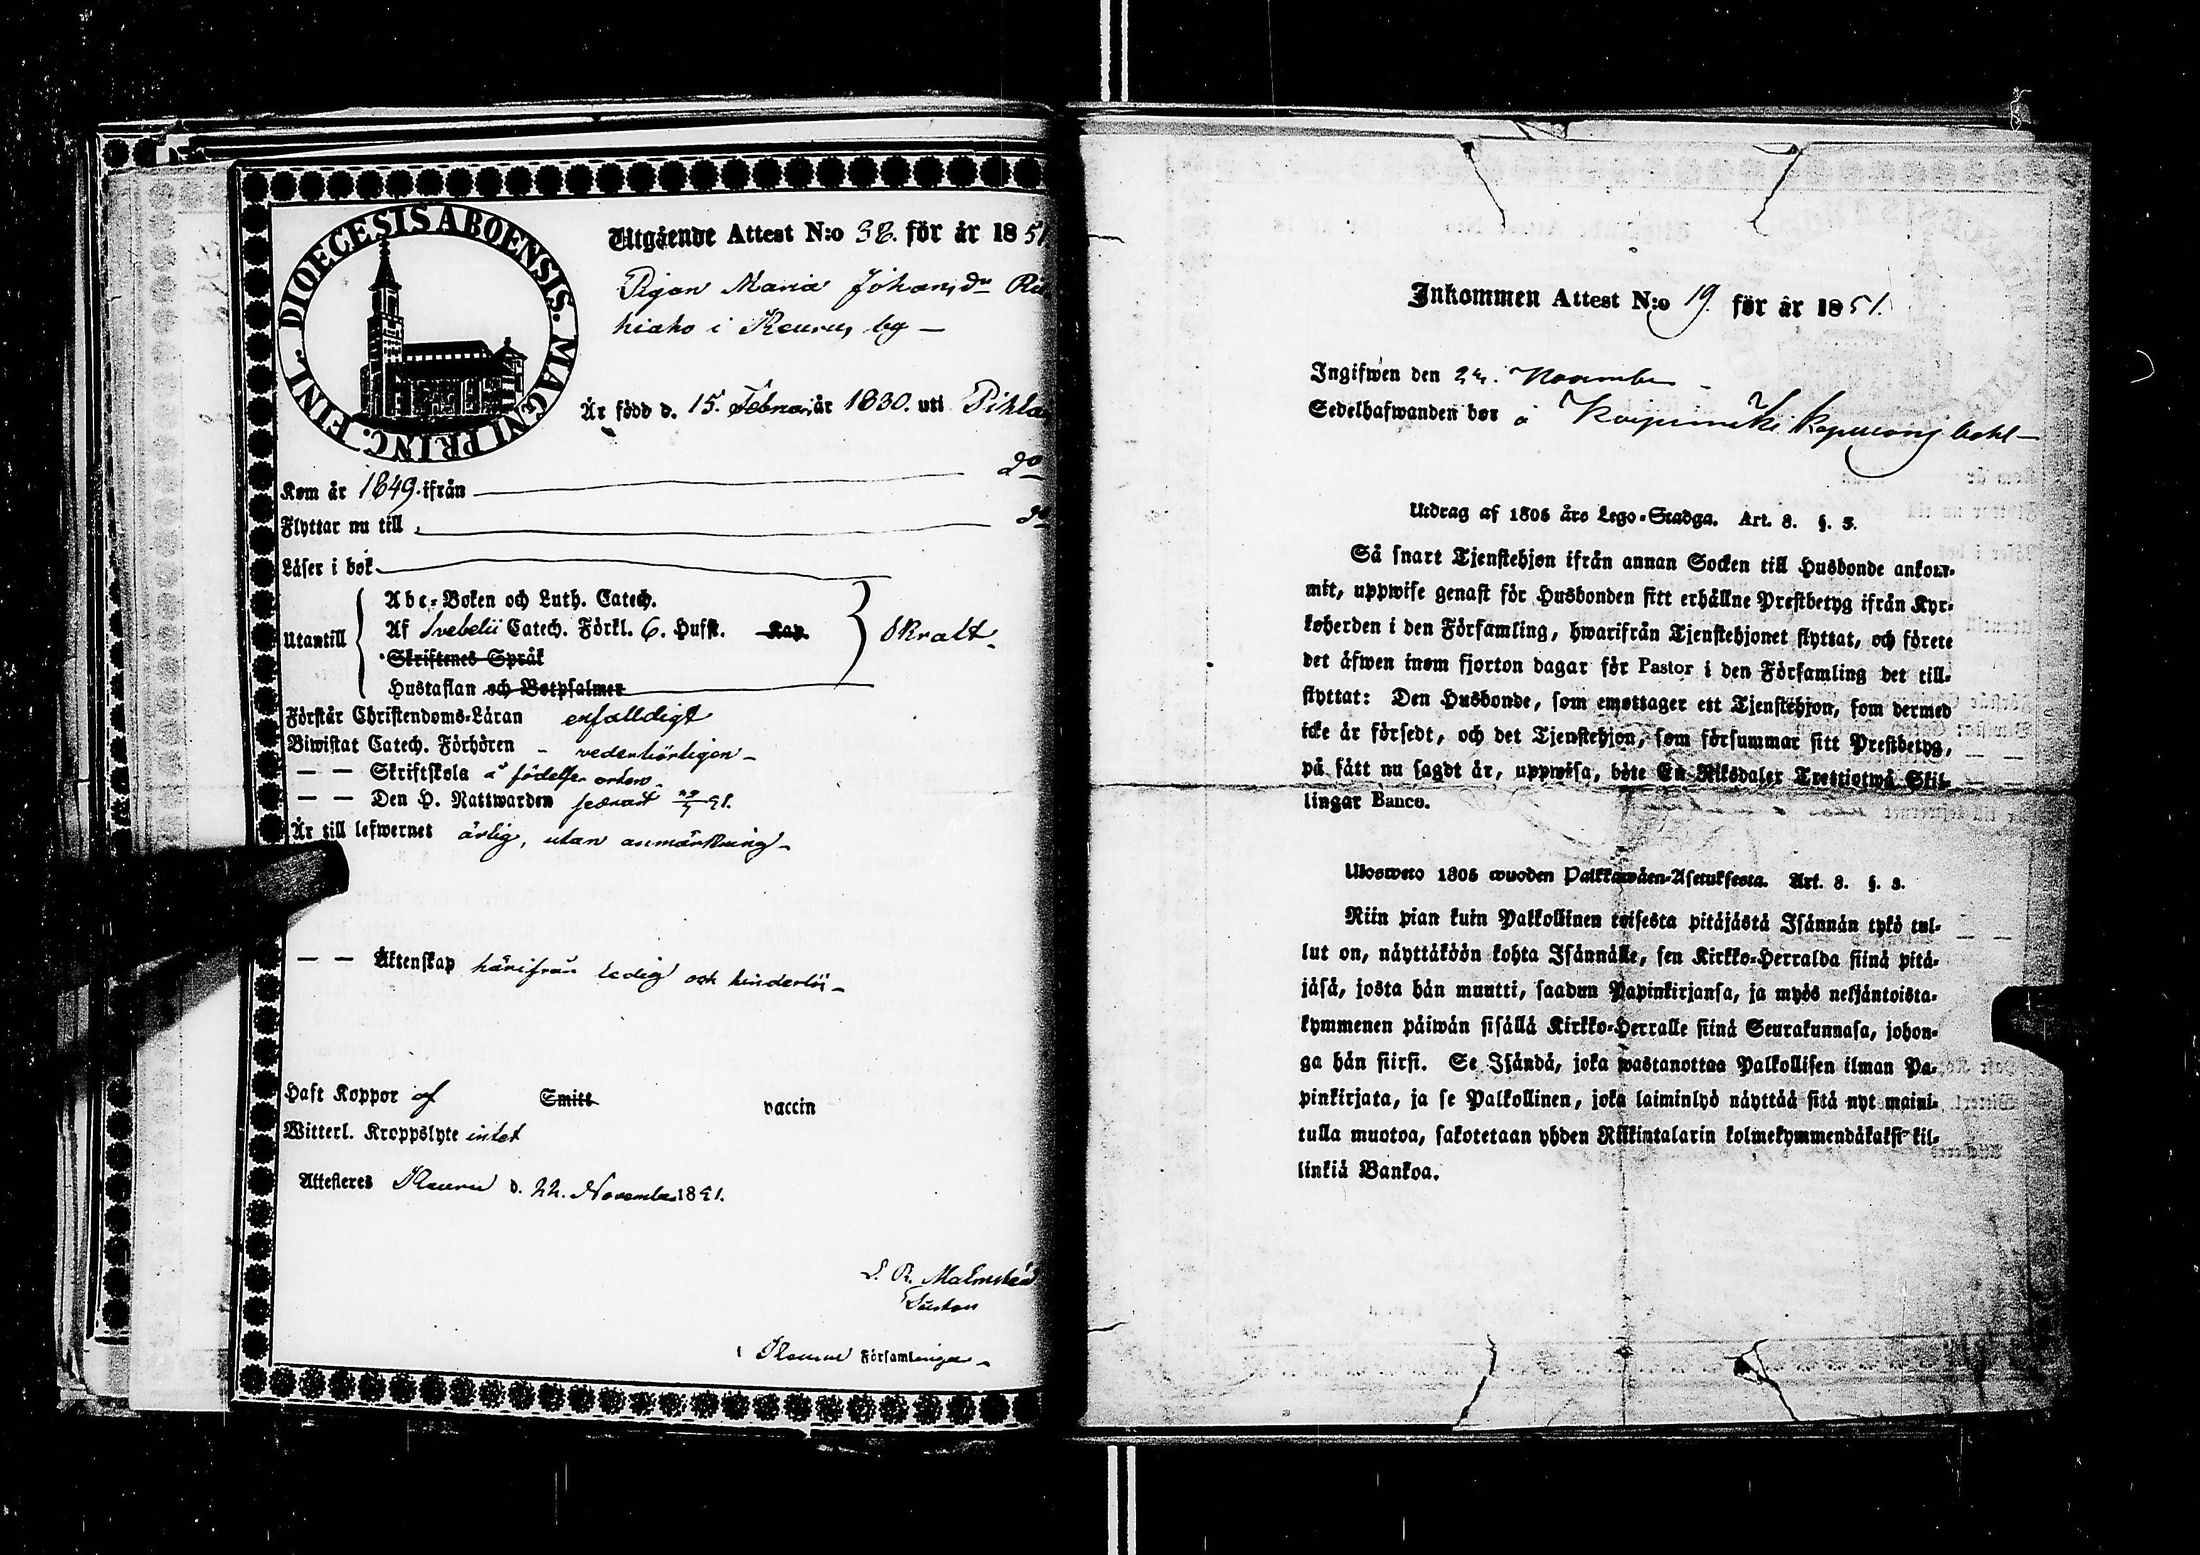 DIOECESIS ABOENSIS. MAGNI PRINC. FINL.
Utgående Attest N:o 38. för år 1851
Pigan Maria Johansdr
i Keuru by —
Är född d. 15. Februari år 1830. uti Pihla
Kom år 1849. ifrån — do
Flyttar nu till — do
Läser i bok
Utantill
Abc-Boken och Luth. Catech.
Af Svebelii Catech. Förkl. 6. Hufst. Kap.
Skriftenes Språk
Hustaflan och Botpsalmer
Okralt
Förstår Christendoms-Läran enfalldigt
Biwistat Catech. Förhören - vederbörligen -
— — Skriftskola å födelse orten
— — Den H. Nattwarden senast
Är till lefwernet ärlig, utan anmärkning -
— — Äktenskap härifrån ledig och hinderlös -
Haft Koppor af Smitt vaccin
Witterl. Kroppslyte intet
Attesteras Keuru d. 22. November 1851.
Malmsted
i Keuru Församlingar -
Inkommen Attest N:o 19. för år 1851.
Ingifwen den 24. November -
Sedelhafwanden bor å bohl -
Utdrag af 1805 års Lego-Stadga. Art. 8. §. 3.
Så snart Tjenstehjon ifrån annan Socken till Husbonde ankom-
mit, uppwise genast för Husbonden sitt erhållne Prestbetyg ifrån Kyr-
koherden i den Församling, hwarifrån Tjenstehjonet flyttat, och förete
det äfwen inom fjorton dagar för Pastor i den Församling det till-
flyttat: Den Husbonde, som emottager ett Tjenstehjon, som dermed
icke är försedt, och det Tjenstehjon, som försummar sitt Prestbetyg,
på sätt nu sagdt är, uppwisa, böte En Riksdaler Trettiotwå Skil-
lingar Banco.
Ulosweto 1805 wuoden Palkkawäen-Asetuksesta. Art. 8. §. 3.
Niin pian kuin Palkollinen toisesta pitäjästä Isännän tykö tul-
lut on, näyttäköön kohta Isännälle, sen Kirkko-Herralda siinä pitä-
jäsä, josta hän muutti, saadun Papinkirjansa, ja myös neljäntoista-
kymmenen päiwän sisällä Kirkko-Herralle siinä Seurakunnasa, johon-
ga hän siirsi. Se Isändä, joka wastanottaa Palkollisen ilman Pa-
pinkirjata, ja se Palkollinen, joka laiminlyö näyttää sitä nyt maini-
tulla muotoa, sakotetaan yhden Riikintalarin kolmekymmendäkaksi kil-
linkiä Bankoa.